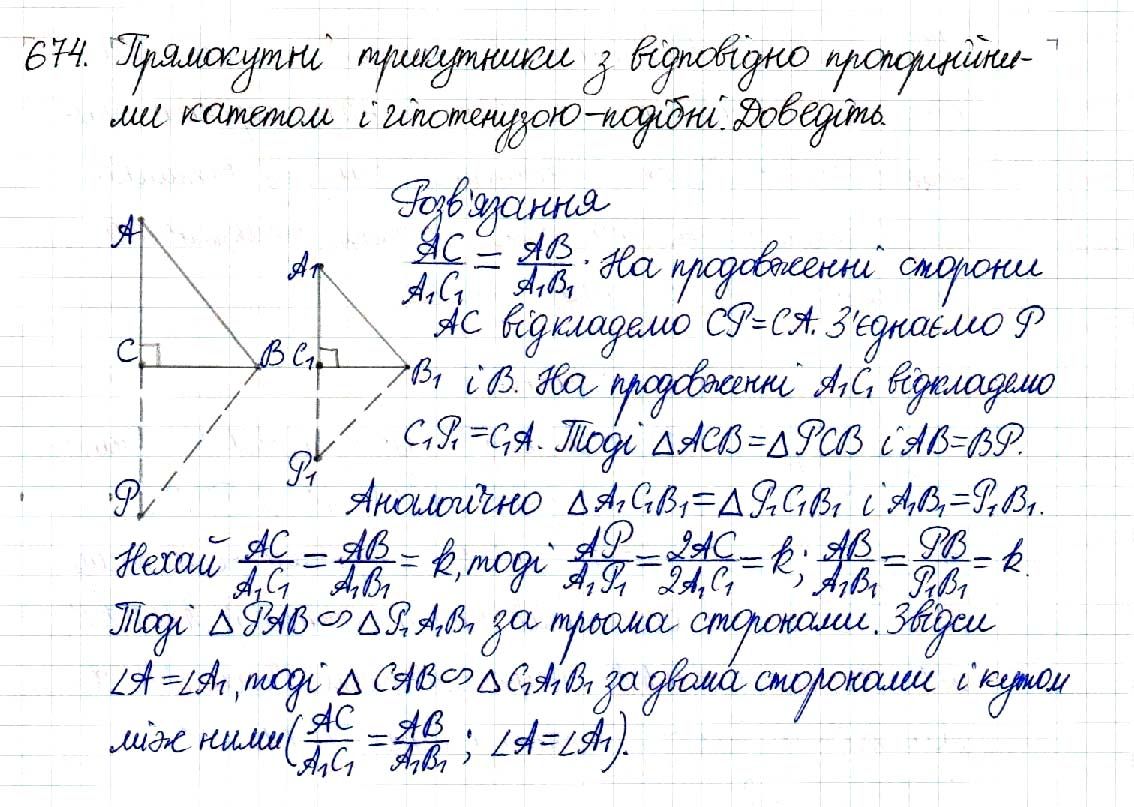 674. Прямокутні трикутники з відповідно пропорційни-
ми катетом і гіпотенузою – подібні. Доведіть.
Розв'язання
AC/A₁C₁ = AB/A₁B₁. На продовженні сторони
AC відкладемо CP=CA. З'єднаємо P
і B. На продовженні A₁C₁ відкладемо
C₁P₁=C₁A. Тоді △ACB=△PCB і AB=BP.
Аналогічно △A₁C₁B₁=△P₁C₁B₁ і A₁B₁=P₁B₁.
Нехай AC/A₁C₁ = AB/A₁B₁ = k, тоді AP/A₁P₁ = 2AC/2A₁C₁ = k; AB/A₁B₁ = PB/P₁B₁ = k.
Тоді △PAB∽△P₁A₁B₁ за трьома сторонами. Звідси
∠A=∠A₁, тоді △CAB∽△C₁A₁B₁ за двома сторонами і кутом
між ними (AC/A₁C₁ = AB/A₁B₁; ∠A=∠A₁).
A
C
B
P
A₁
C₁
B₁
P₁